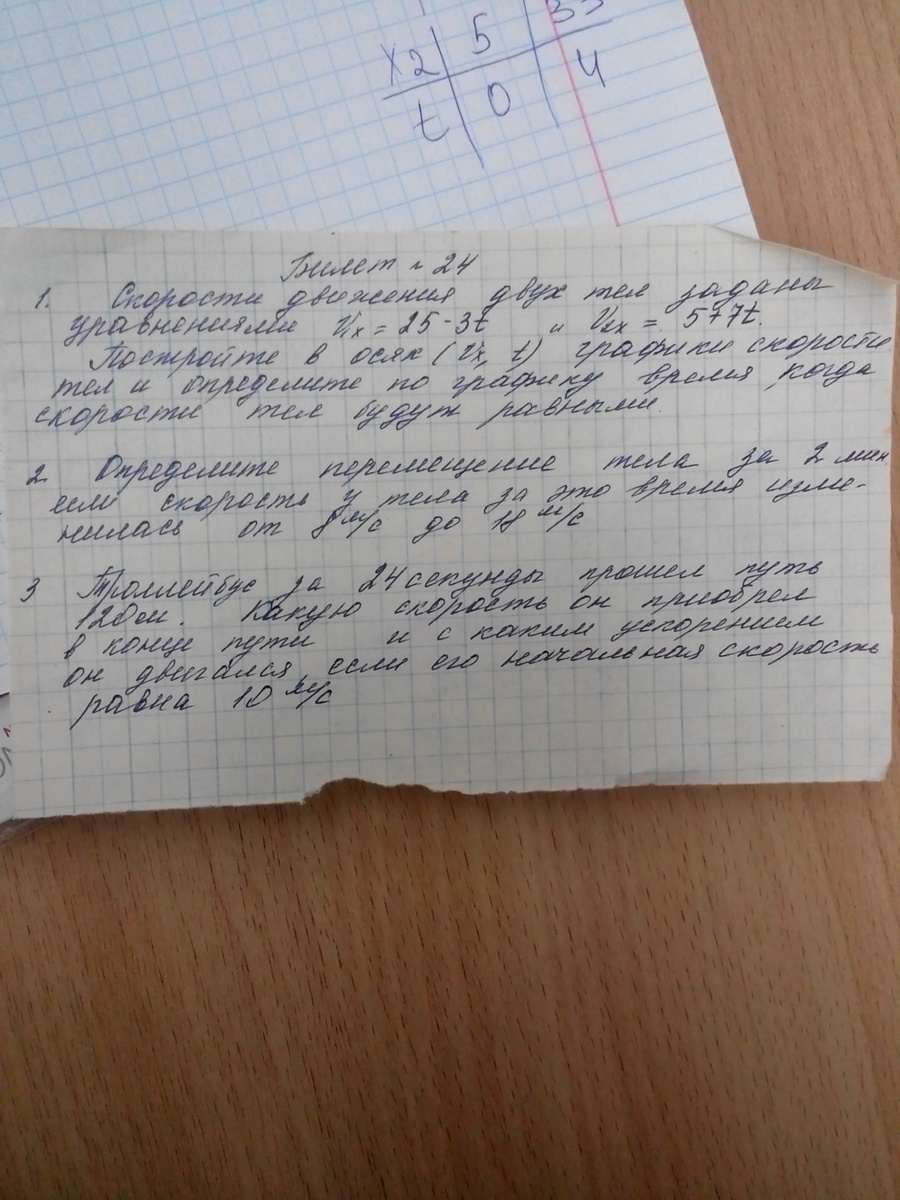 x2 | 5 | 33
t | 0 | 4
Билет № 24
1. Скорости движения двух тел заданы
уравнениями Vx = 25 - 3t и V2x = 5+7t.
Постройте в осях (Vx, t) графики скорости
тел и определите по графику время, когда
скорости тел будут равными.
2. Определите перемещение тела за 2 мин.
если скорость у тела за это время изме-
нилась от 8 м/с до 18 м/с
3 Троллейбус за 24 секунды прошел путь
120 м. Какую скорость он приобрел
в конце пути и с каким ускорением
он двигался, если его начальная скорость
равна 10 м/с